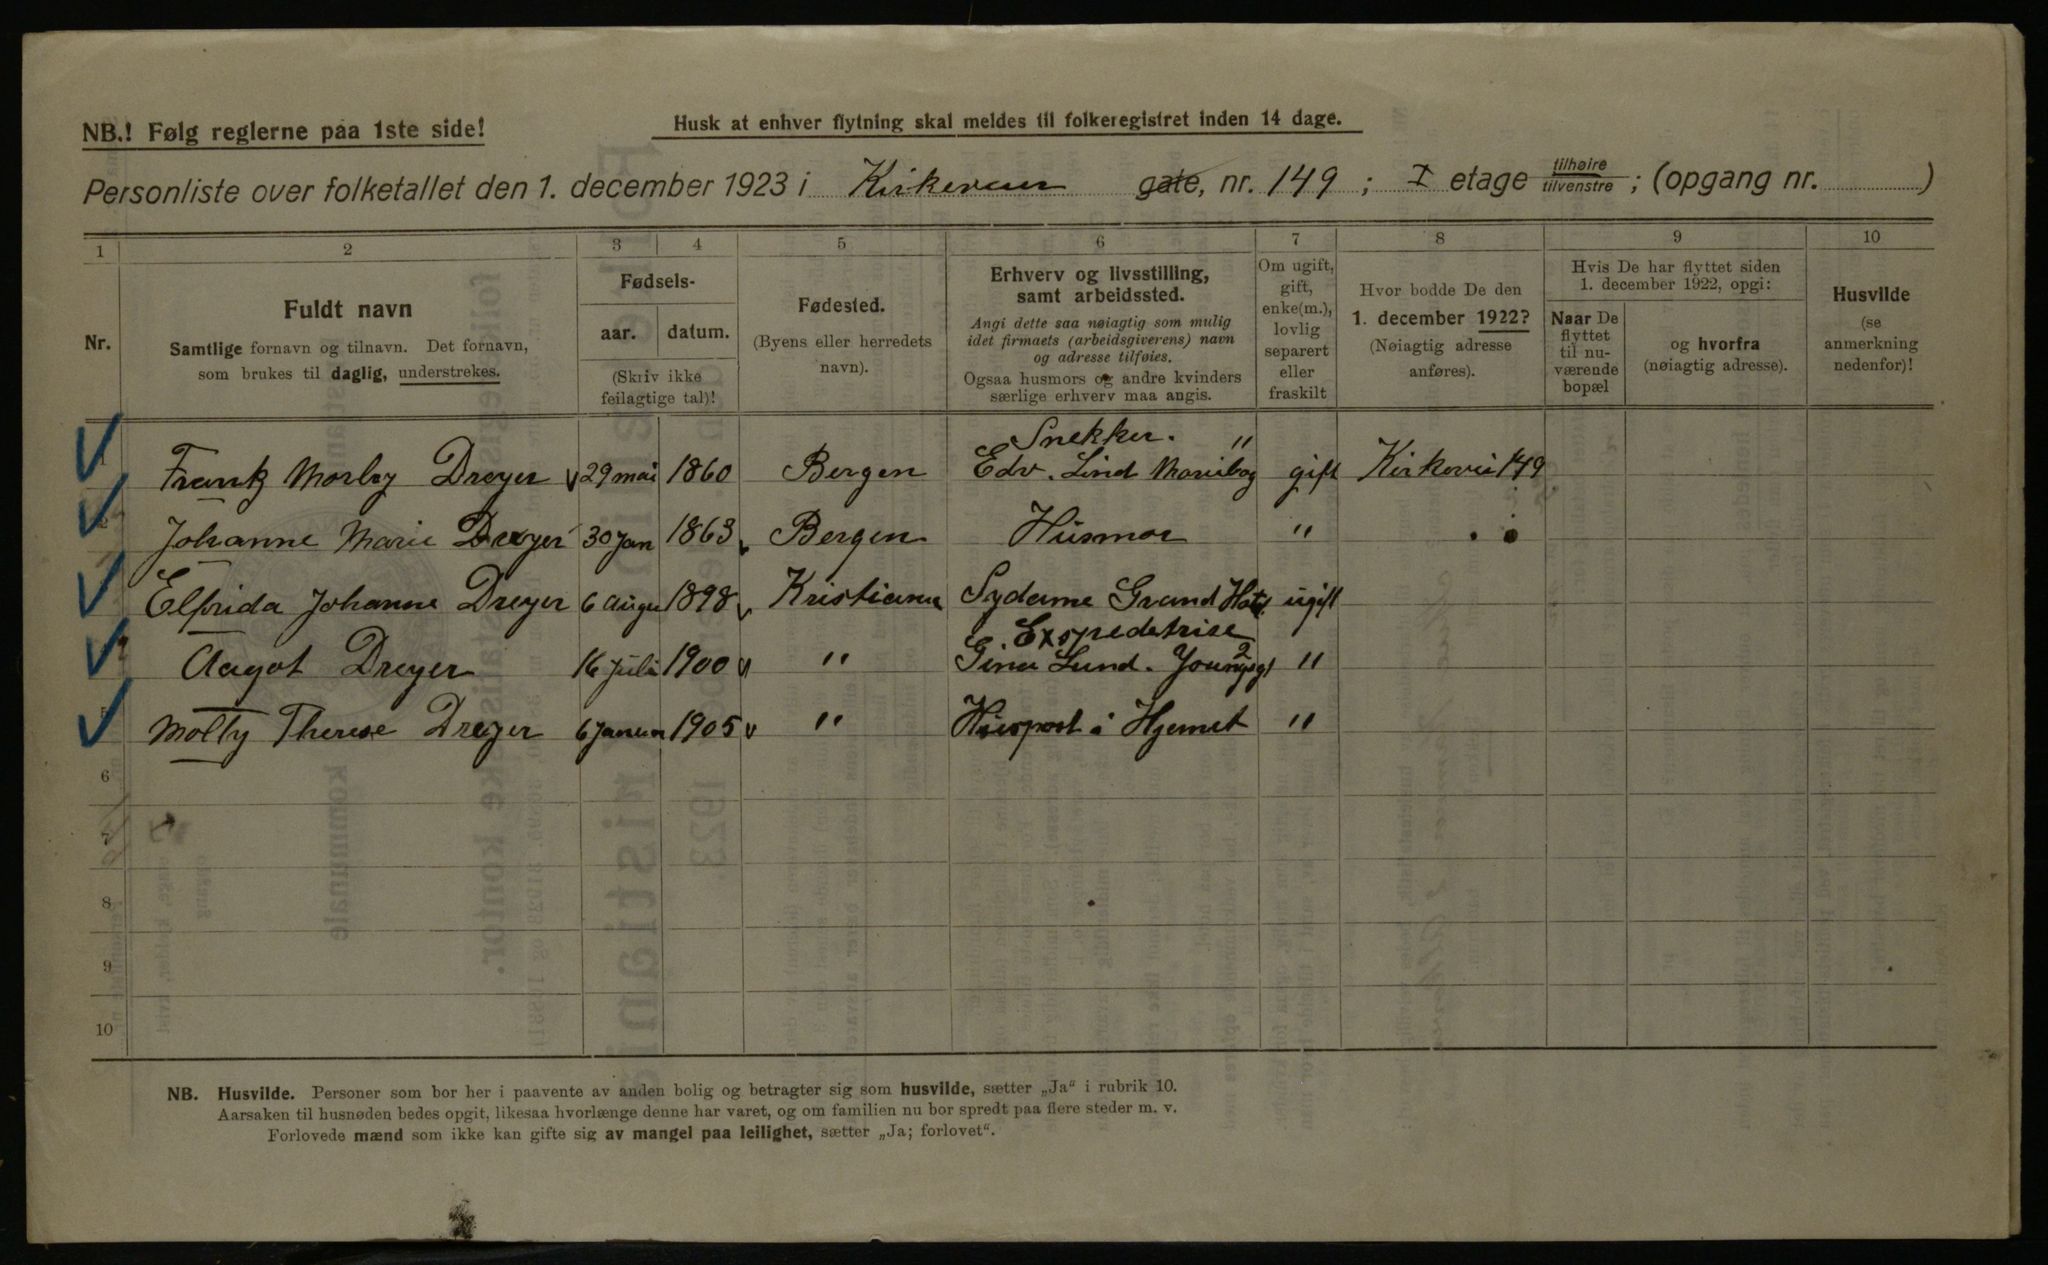 NB.! Følg reglerne paa 1ste side!
Husk at enhver flytning skal meldes til folkeregistret inden 14 dage.
Personliste over folketallet den 1. december 1923 i Kirkeveien gate, nr. 149 ; I etage tilhøire/tilvenstre ; (opgang nr. )
1 2 3 4 5 6 7 8 9 10
Nr.
Fuldt navn
Samtlige fornavn og tilnavn. Det fornavn,
som brukes til daglig, understrekes.
Fødsels-
aar. datum.
(Skriv ikke
feilagtige tal)!
Fødested.
(Byens eller herredets
navn).
Erhverv og livsstilling,
samt arbeidssted.
Angi dette saa nøiagtig som mulig
idet firmaets (arbeidsgiverens) navn
og adresse tilføies.
Ogsaa husmors og andre kvinders
særlige erhverv maa angis.
Om ugift,
gift,
enke(m.),
lovlig
separert
eller
fraskilt
Hvor bodde De den
1. december 1922?
(Nøiagtig adresse
anføres).
Hvis De har flyttet siden
1. december 1922, opgi:
Naar De
flyttet
til nu-
værende
bopæl
og hvorfra
(nøiagtig adresse).
Husvilde
(se
anmerkning
nedenfor)!
Snekker. "
Frank Morley Dreyer 29 mai 1860 Bergen Edv. Lind gift Kirkevei 149
Johanne Marie Dreyer 30 Jan 1863 Bergen Husmor "
Elfrida Johanne Dreyer 6 Augu 1898 Kristiania Sydame Grand Hotel ugift
Expedetrise
Aagot Dreyer 16 juli 1900 " Gina Lund. Youngsgt 2 "
5 Molly Therese Dreyer 6 Januar 1905 " Huspost i Hjemet "
6
7
8
9
10
NB. Husvilde. Personer som bor her i paavente av anden bolig og betragter sig som husvilde, sætter „Ja“ i rubrik 10.
Aarsaken til husnøden bedes opgit, likesaa hvorlænge denne har varet, og om familien nu bor spredt paa flere steder m. v.
Forlovede mænd som ikke kan gifte sig av mangel paa leilighet, sætter „Ja; forlovet“.